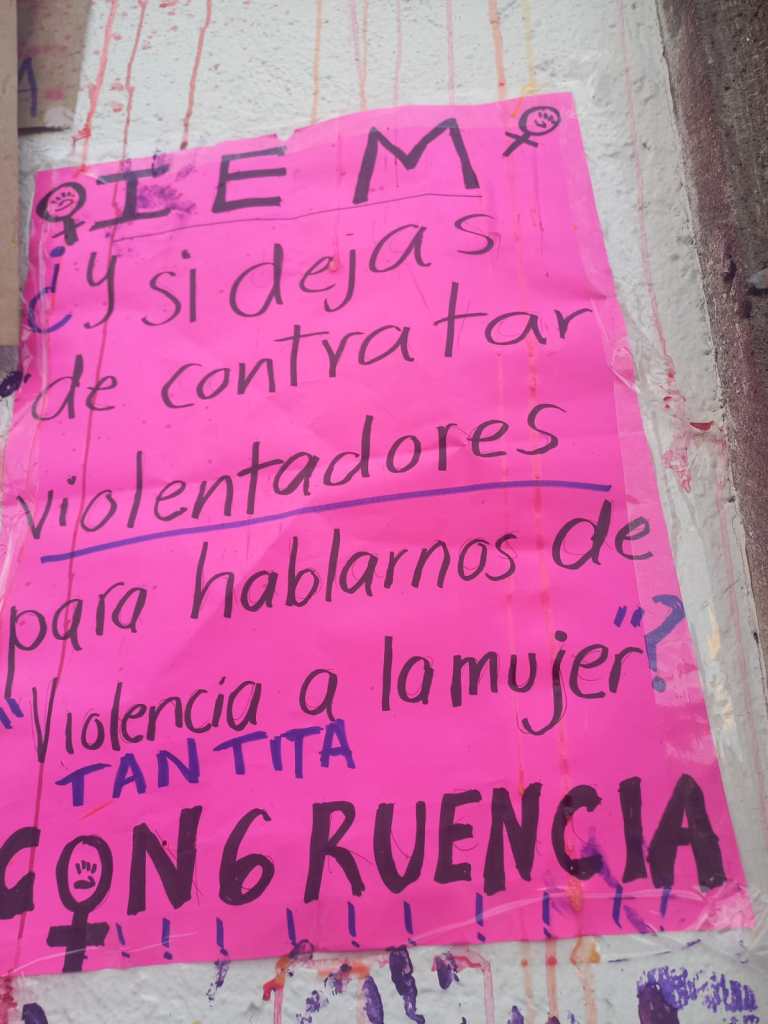 IEM
¿y si dejas
de contratar
violentadores
para hablarnos de
"Violencia a la mujer"?
TANTITA
CONGRUENCIA
!!!!!!!!!!